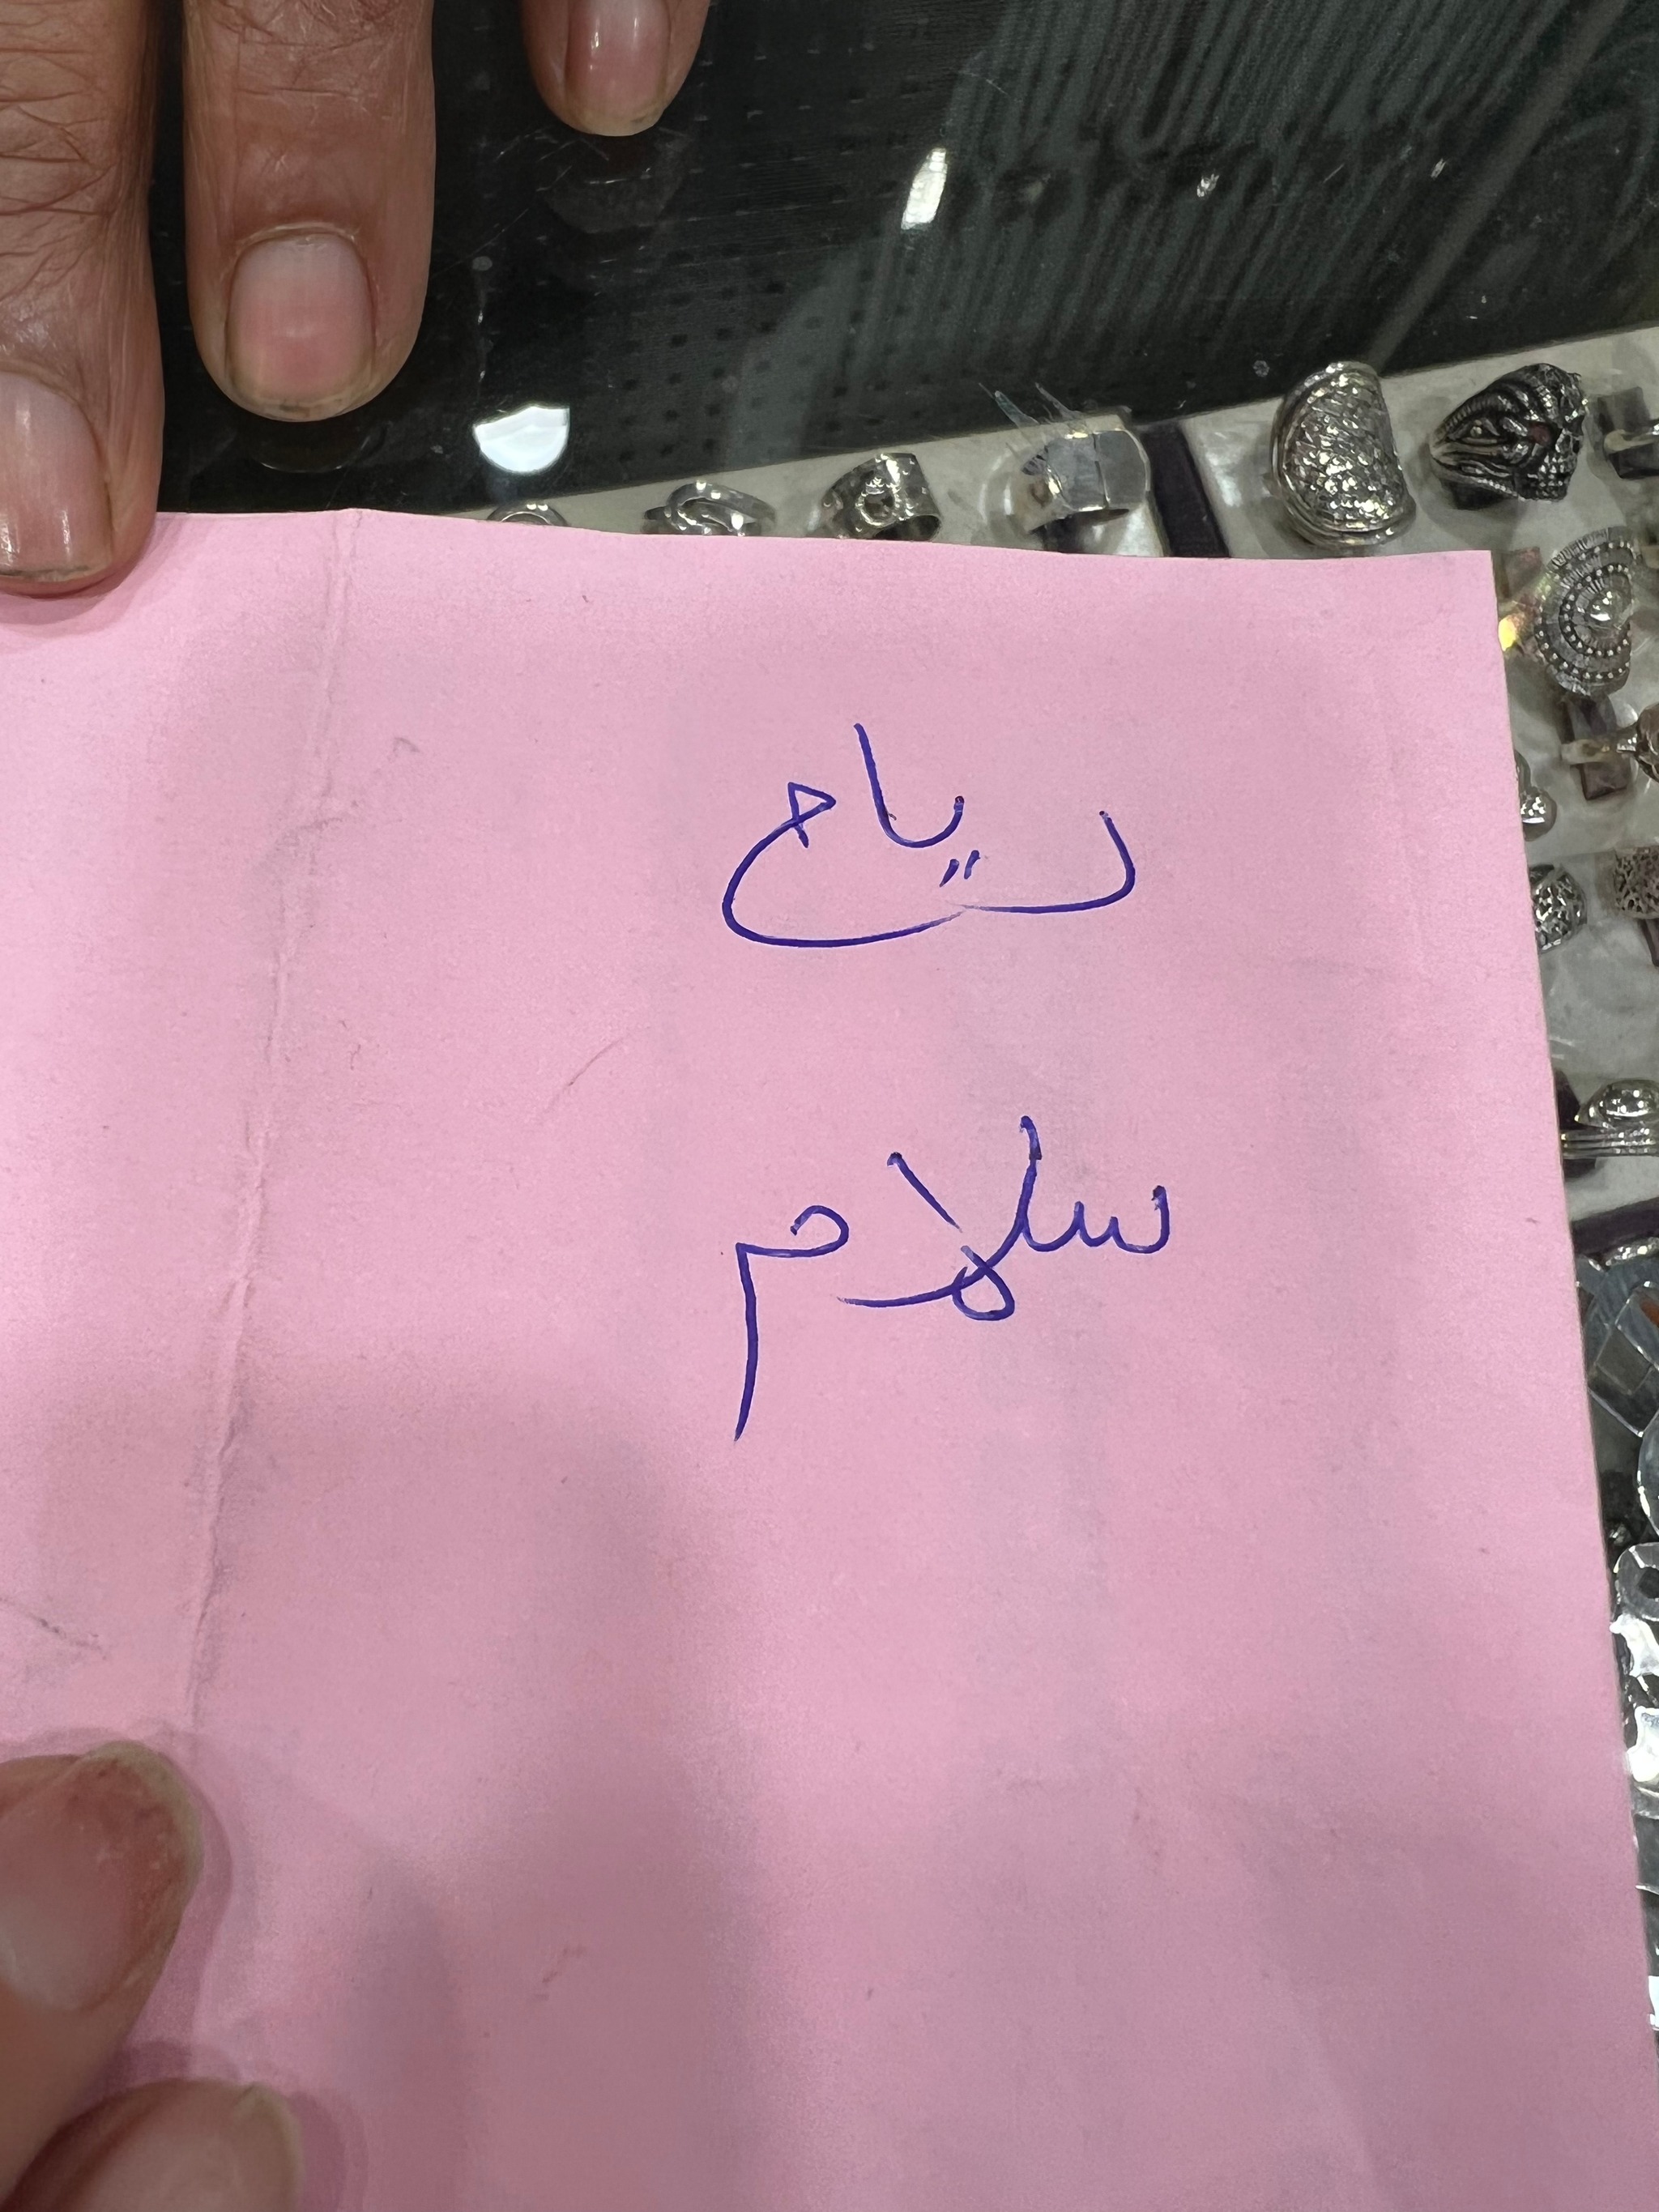 رياح
سلام